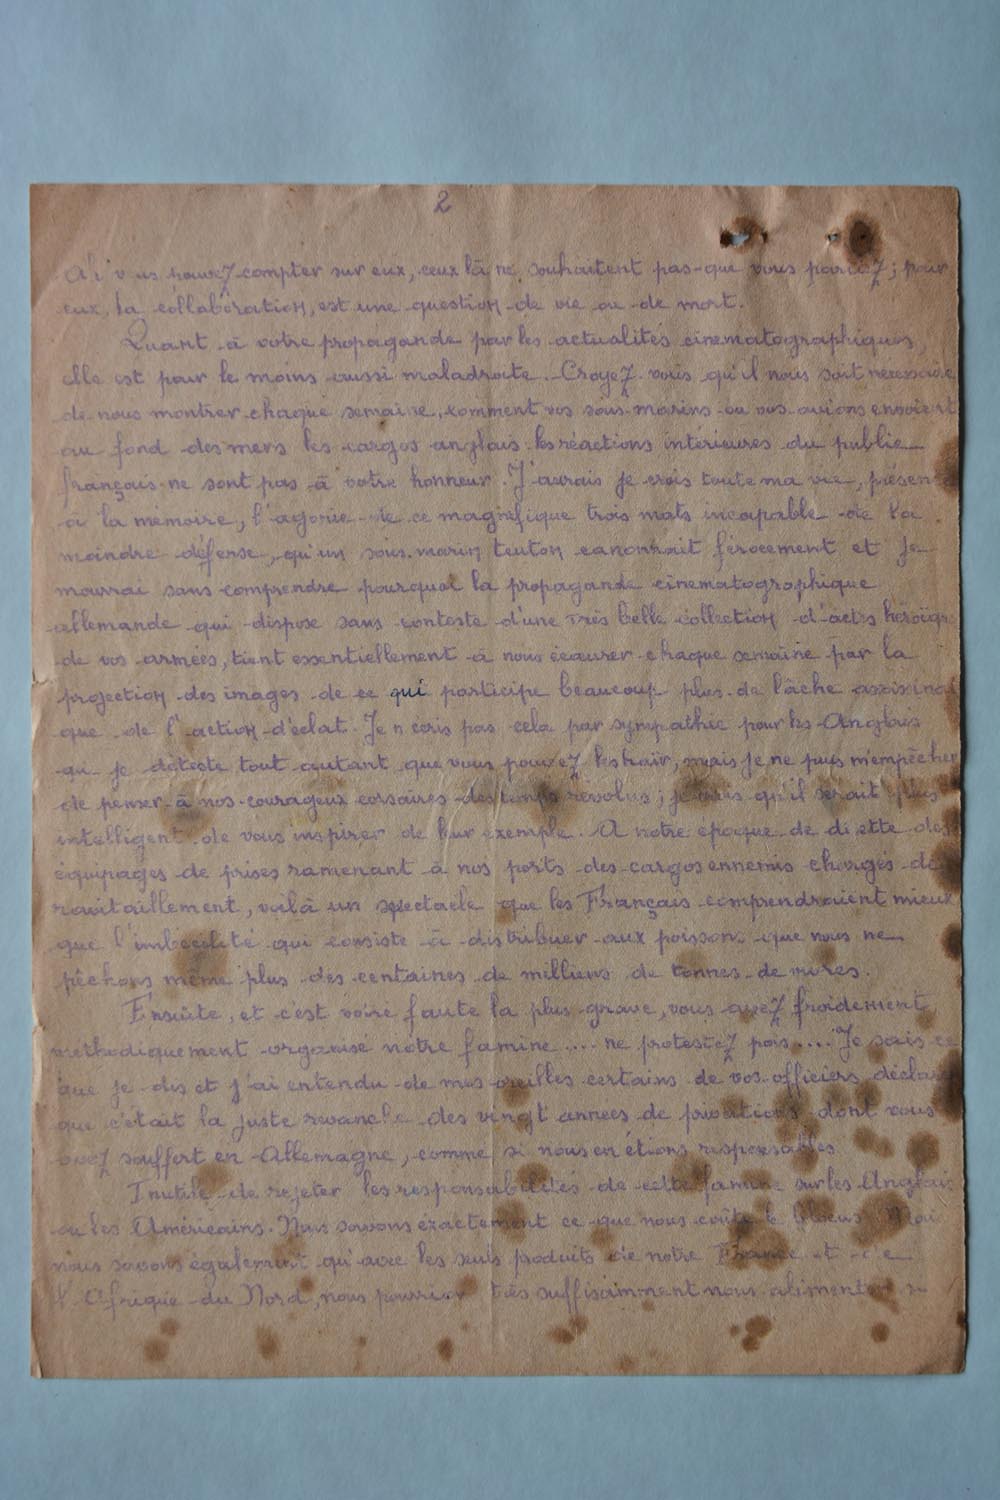 2
vous pouvez compter sur eux, ceux là ne souhaitent pas que vous partiez ; pour
eux, la collaboration, est une question de vie ou de mort.
Quant à votre propagande par les actualités cinematographiques,
elle est pour le moins aussi maladroite. Croyez vous qu'il nous soit necessaire
de nous montrer chaque semaine, comment vos sous-marins ou vos avions envoient
au fond des mers les cargos anglais. les réactions intérieures du public
français ne sont pas à votre honneur. J'aurais je crois toute ma vie, présente
à la mémoire, l'agonie de ce magnifique trois mats incapable de la
moindre défense, qu'un sous-marin teuton canonnait férocement et je
mourrai sans comprendre pourquoi la propagande cinematographique
allemande qui dispose sans conteste d'une très belle collection d'actes héroïques
de vos armées, tient essentiellement à nous écœurer chaque semaine par la
projection des images de ce qui participe beaucoup plus de lâche assassinat
que de l'action d'éclat. Je n'ecris pas cela par sympathie pour les Anglais
que je déteste tout autant que vous pouvez les haïr, mais je ne puis m'empêcher
de penser à nos courageux corsaires des temps révolus ; je crois qu'il serait plus
intelligent de vous inspirer de leur exemple. A notre epoque de disette des
équipages de prises ramenant à nos ports des cargos ennemis chargés de
ravitaillement, voilà un spectacle que les Français comprendraient mieux
que l'imbécilité qui consiste à distribuer aux poissons que nous ne
pêchons même plus des centaines de milliers de tonnes de vivres.
Ensuite, et c'est votre faute la plus grave, vous avez froidement,
methodiquement organisé notre famine .... ne protestez pas .... Je sais ce
que je dis et j'ai entendu de mes oreilles certains de vos officiers déclarer
que c'était la juste revanche des vingt annees de privations dont vous
avez souffert en Allemagne, comme si nous en étions responsables.
Inutile de rejeter les responsabilités de cette famine sur les Anglais
ou les Américains. Nous savons exactement ce que nous coûte le blocus. Mais
nous savons également qu'avec les seuls produits de notre France et de
l'Afrique du Nord, nous pourrions très suffisamment nous alimenter